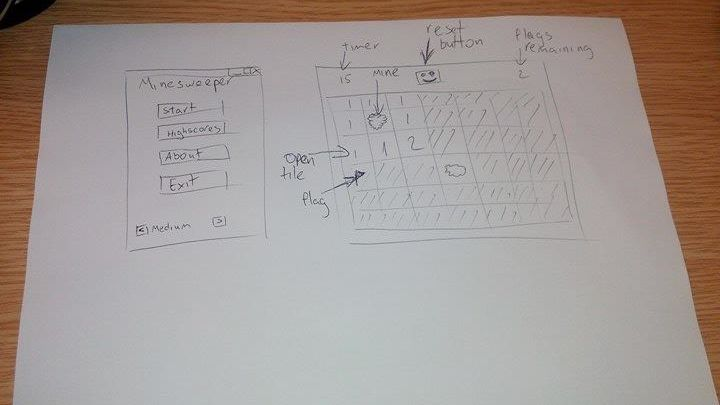 Minesweeper
Start
Highscores
About
Exit
< Medium >
timer
reset
button
flags
remaining
15
mine
2
1 1 1
1 1
1 1 2
open
tile
flag